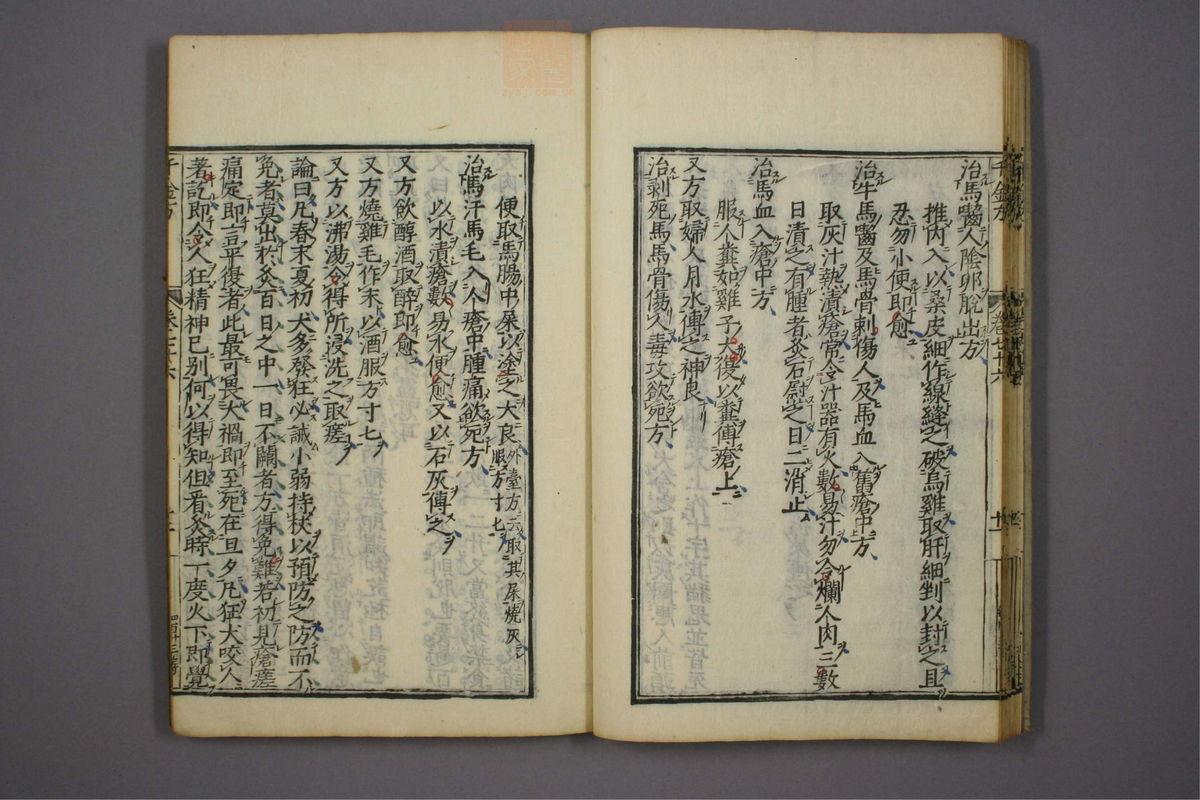 治馬嚙人陰卵脫出方
推內入以桑皮細作線縫之破烏雞取肝細剉以封之且
忍勿小便即愈
治牛馬嚙及馬骨刺傷人及馬血入舊瘡中方
取灰汁熱漬瘡常令汁器有火數易汁勿令爛人肉三數
日漬之有腫者炙石熨之日二消止
治馬血入瘡中方
服人糞如雞子大復以糞傅瘡上
又方取婦人月水傅之神良
治剝死馬馬骨傷人毒攻欲死方
便取馬腸中屎以塗之大良外臺方云取其屎燒灰服方寸匕
治馬汗馬毛入人瘡中腫痛欲死方
以水漬瘡數易水便愈又以石灰傅之
又方飲醇酒取醉即愈
又方燒雞毛作末以酒服方寸匕
又方以沸湯令得所浸洗之取瘥
論曰凡春末夏初犬多發狂必誡小弱持杖以預防之防而不
免者莫出於灸百日之中一日不闕者方得免難若初見瘡瘥
痛定即言平復者此最可畏大禍即至死在旦夕凡狂犬咬人
著訖即令人狂精神已別何以得知但看灸時一度火下即覺
千金方
卷七十六